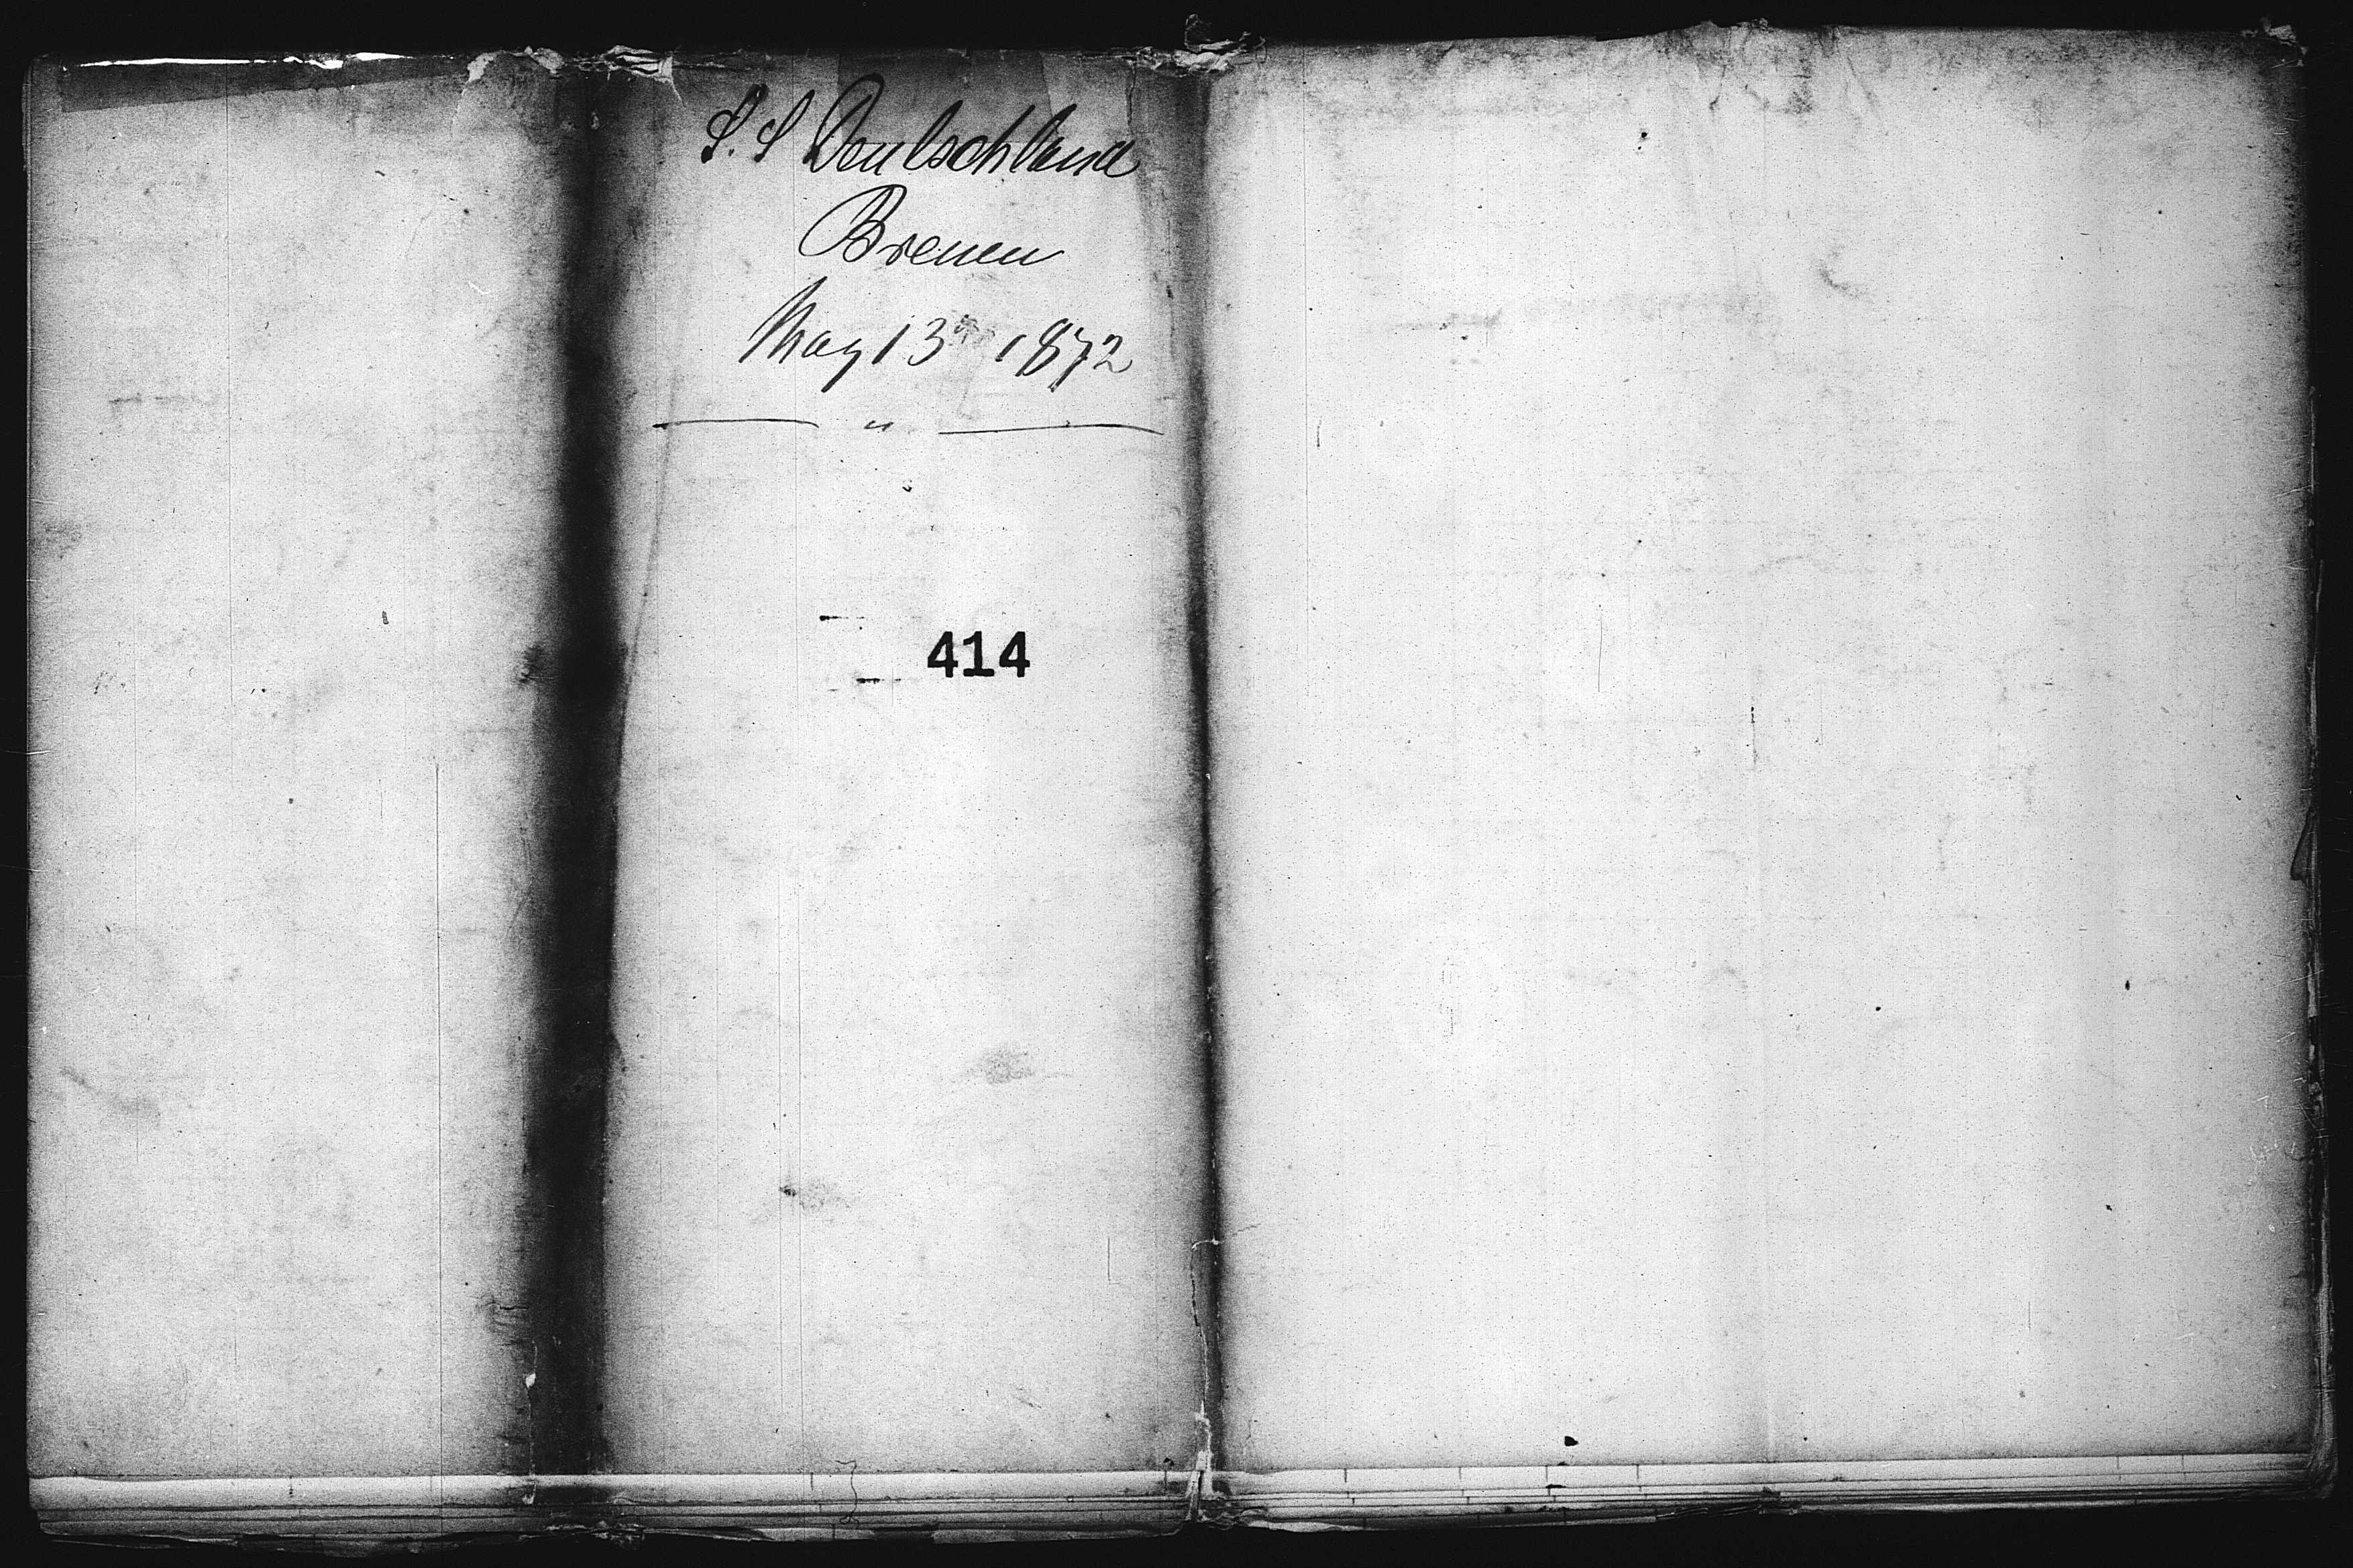 S.S Deutschland
Bremen
May 13th 1872
— " —
414